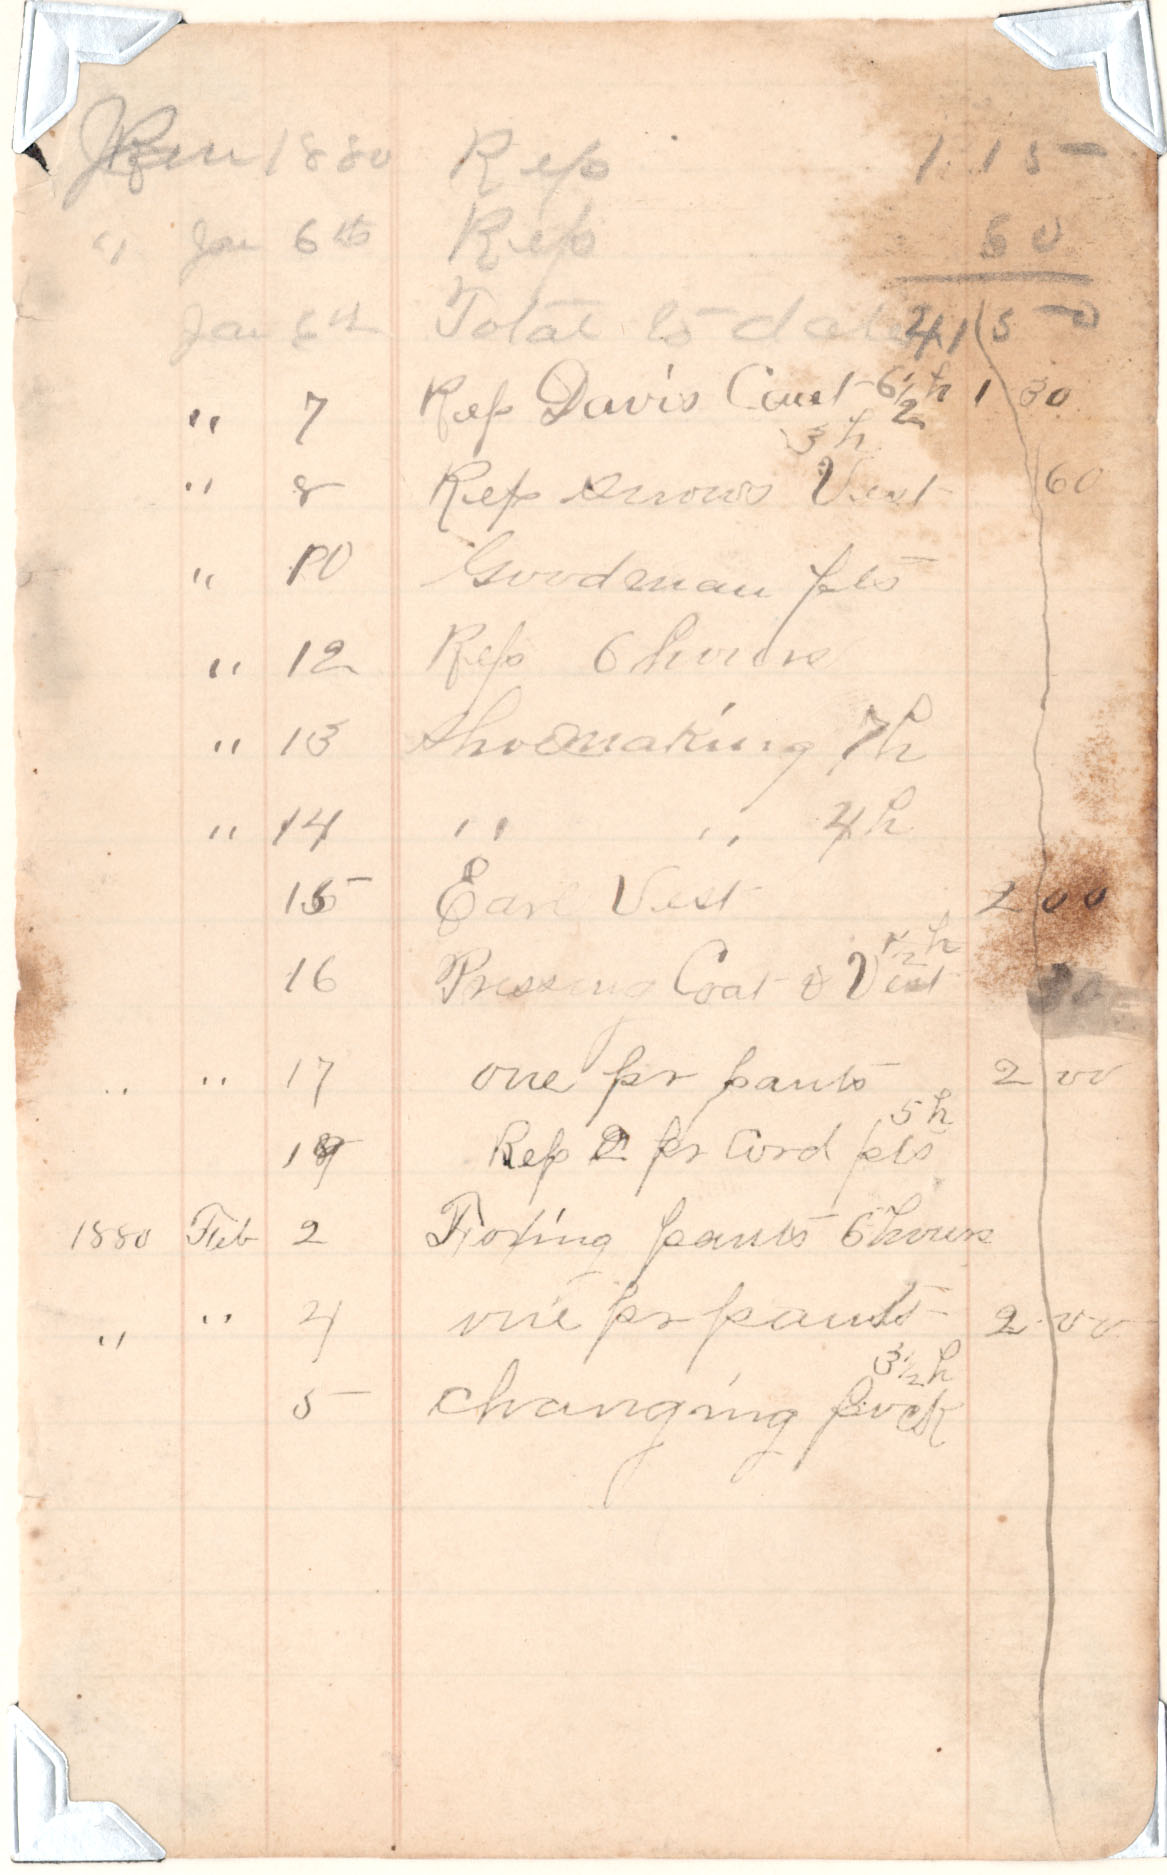 Jan 1880 Rep 1 15
" Jan 6th Rep 50
Jan 6th Total to date 41 50
" 7 Rep Davis Coat 6 1/2 h 1 30
3 h
" 8 Rep Vest 60
" 10 Goodman pts
" 12 Rep 6 hours
" 13 Shoemaking 7 h
" 14 " " 4 h
15 Earl Vest 2 00
1/2 h
16 Pressing Coat & Vest
" " 17 one pr pants 2 00
5 h
19 Rep 2 pr Cord pts
1880 Feb 2 Fixing pants 6 hours
" " 4 one pr pants 2 00
3 1/2 h
5 changing pock